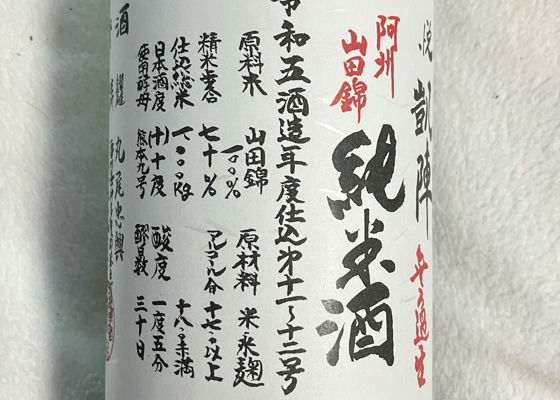 悦凱陣
無ろ過生
阿州
山田錦
純米酒
令和五酒造年度仕込第十一〜十二号
原料米 山田錦 一〇〇%
原材料 米 米麹
精米歩合 七十%
アルコール分 十七以上 十八未満
仕込総米 一、一〇〇kg
日本酒度 (+)十度
酸度 一度五分
使用酵母 熊本九号
醪日数 三十日
酒
丸尾忠興